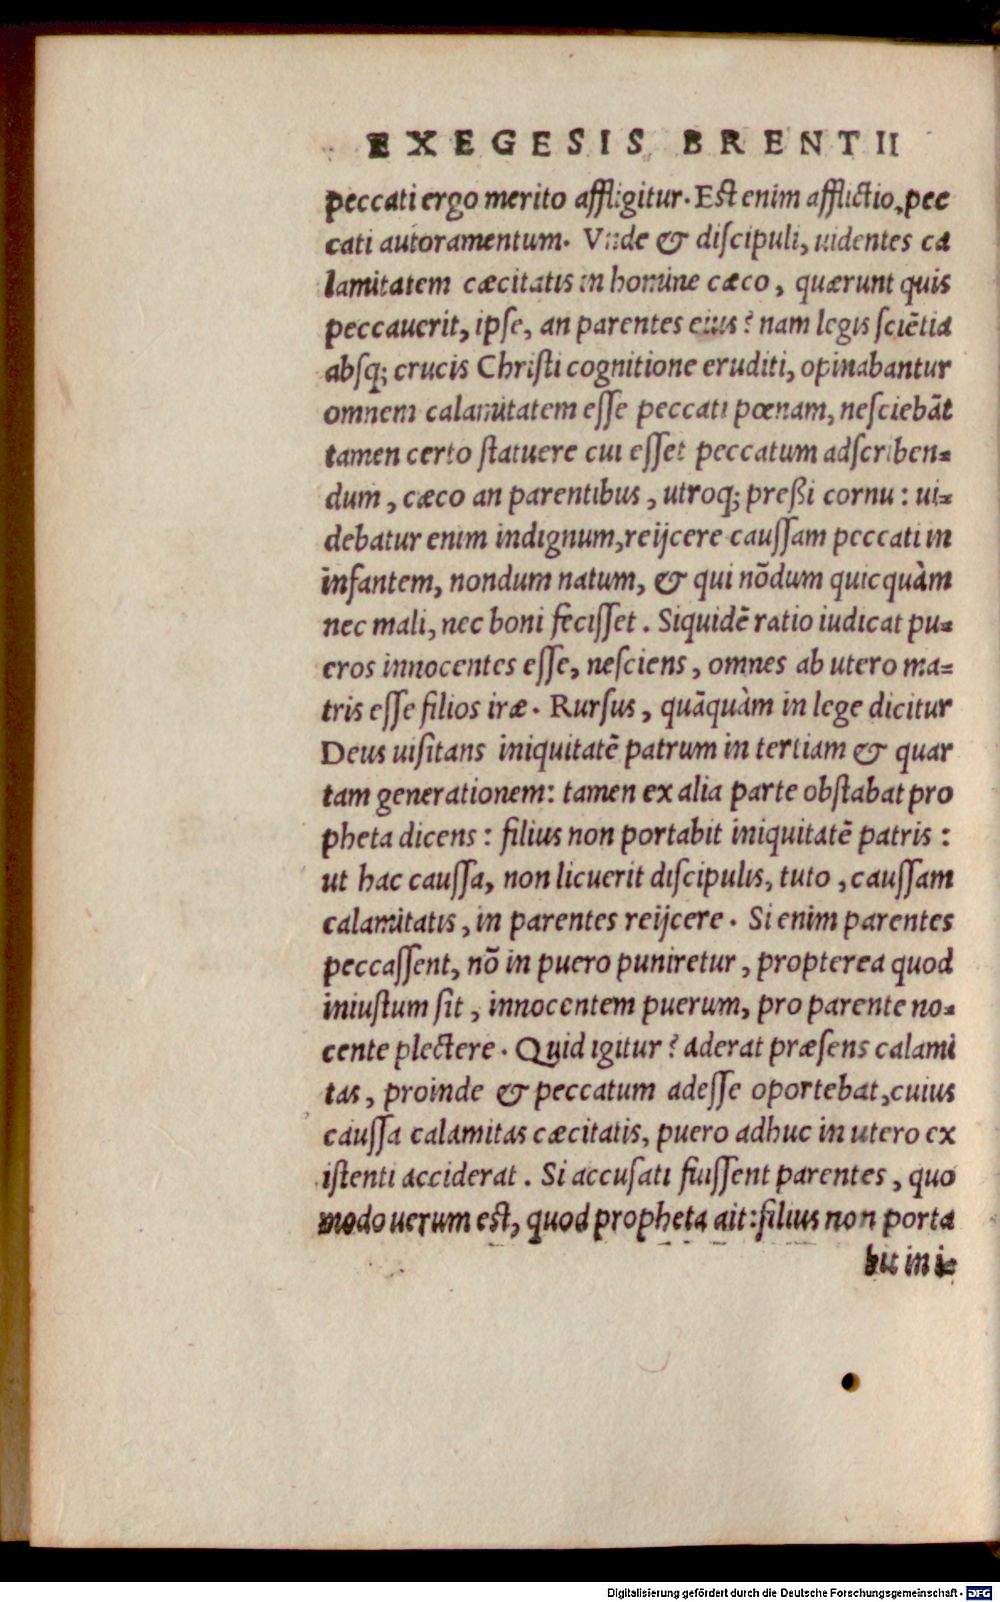 EXEGESIS BRENTII
peccati ergo merito affligitur. Est enim afflictio, pec
cati autoramentum. Vnde & diſcipuli, uidentes ca
lamitatem cæcitatis in homine cæco, quærunt quis
peccauerit, ipſe, an parentes eius? nam legis ſciētia
abſq; crucis Chriſti cognitione eruditi, opinabantur
omnem calamitatem eſſe peccati pœnam, neſciebāt
tamen certo ſtatuere cui eſſet peccatum adſcriben=
dum, cæco an parentibus, utroq; preßi cornu: ui=
debatur enim indignum, reijcere cauſſam peccati in
infantem, nondum natum, & qui nōdum quicquàm
nec mali, nec boni feciſſet. Siquidē ratio iudicat pu=
eros innocentes eſſe, neſciens, omnes ab utero ma=
tris eſſe filios iræ. Rurſus, quāquàm in lege dicitur
Deus uiſitans iniquitatē patrum in tertiam & quar
tam generationem: tamen ex alia parte obſtabat pro
pheta dicens: filius non portabit iniquitatē patris:
ut hac cauſſa, non licuerit diſcipulis, tuto, cauſſam
calamitatis, in parentes reijcere. Si enim parentes
peccaſſent, nō in puero puniretur, propterea quod
iniuſtum ſit, innocentem puerum, pro parente no=
cente plectere. Quid igitur? aderat præſens calami
tas, proinde & peccatum adeſſe oportebat, cuius
cauſſa calamitas cæcitatis, puero adhuc in utero ex
iſtenti acciderat. Si accuſati fuiſſent parentes, quo
modo uerum est, quod propheta ait: filius non porta
bit ini=
Digitalisierung gefördert durch die Deutsche Forschungsgemeinschaft - DFG